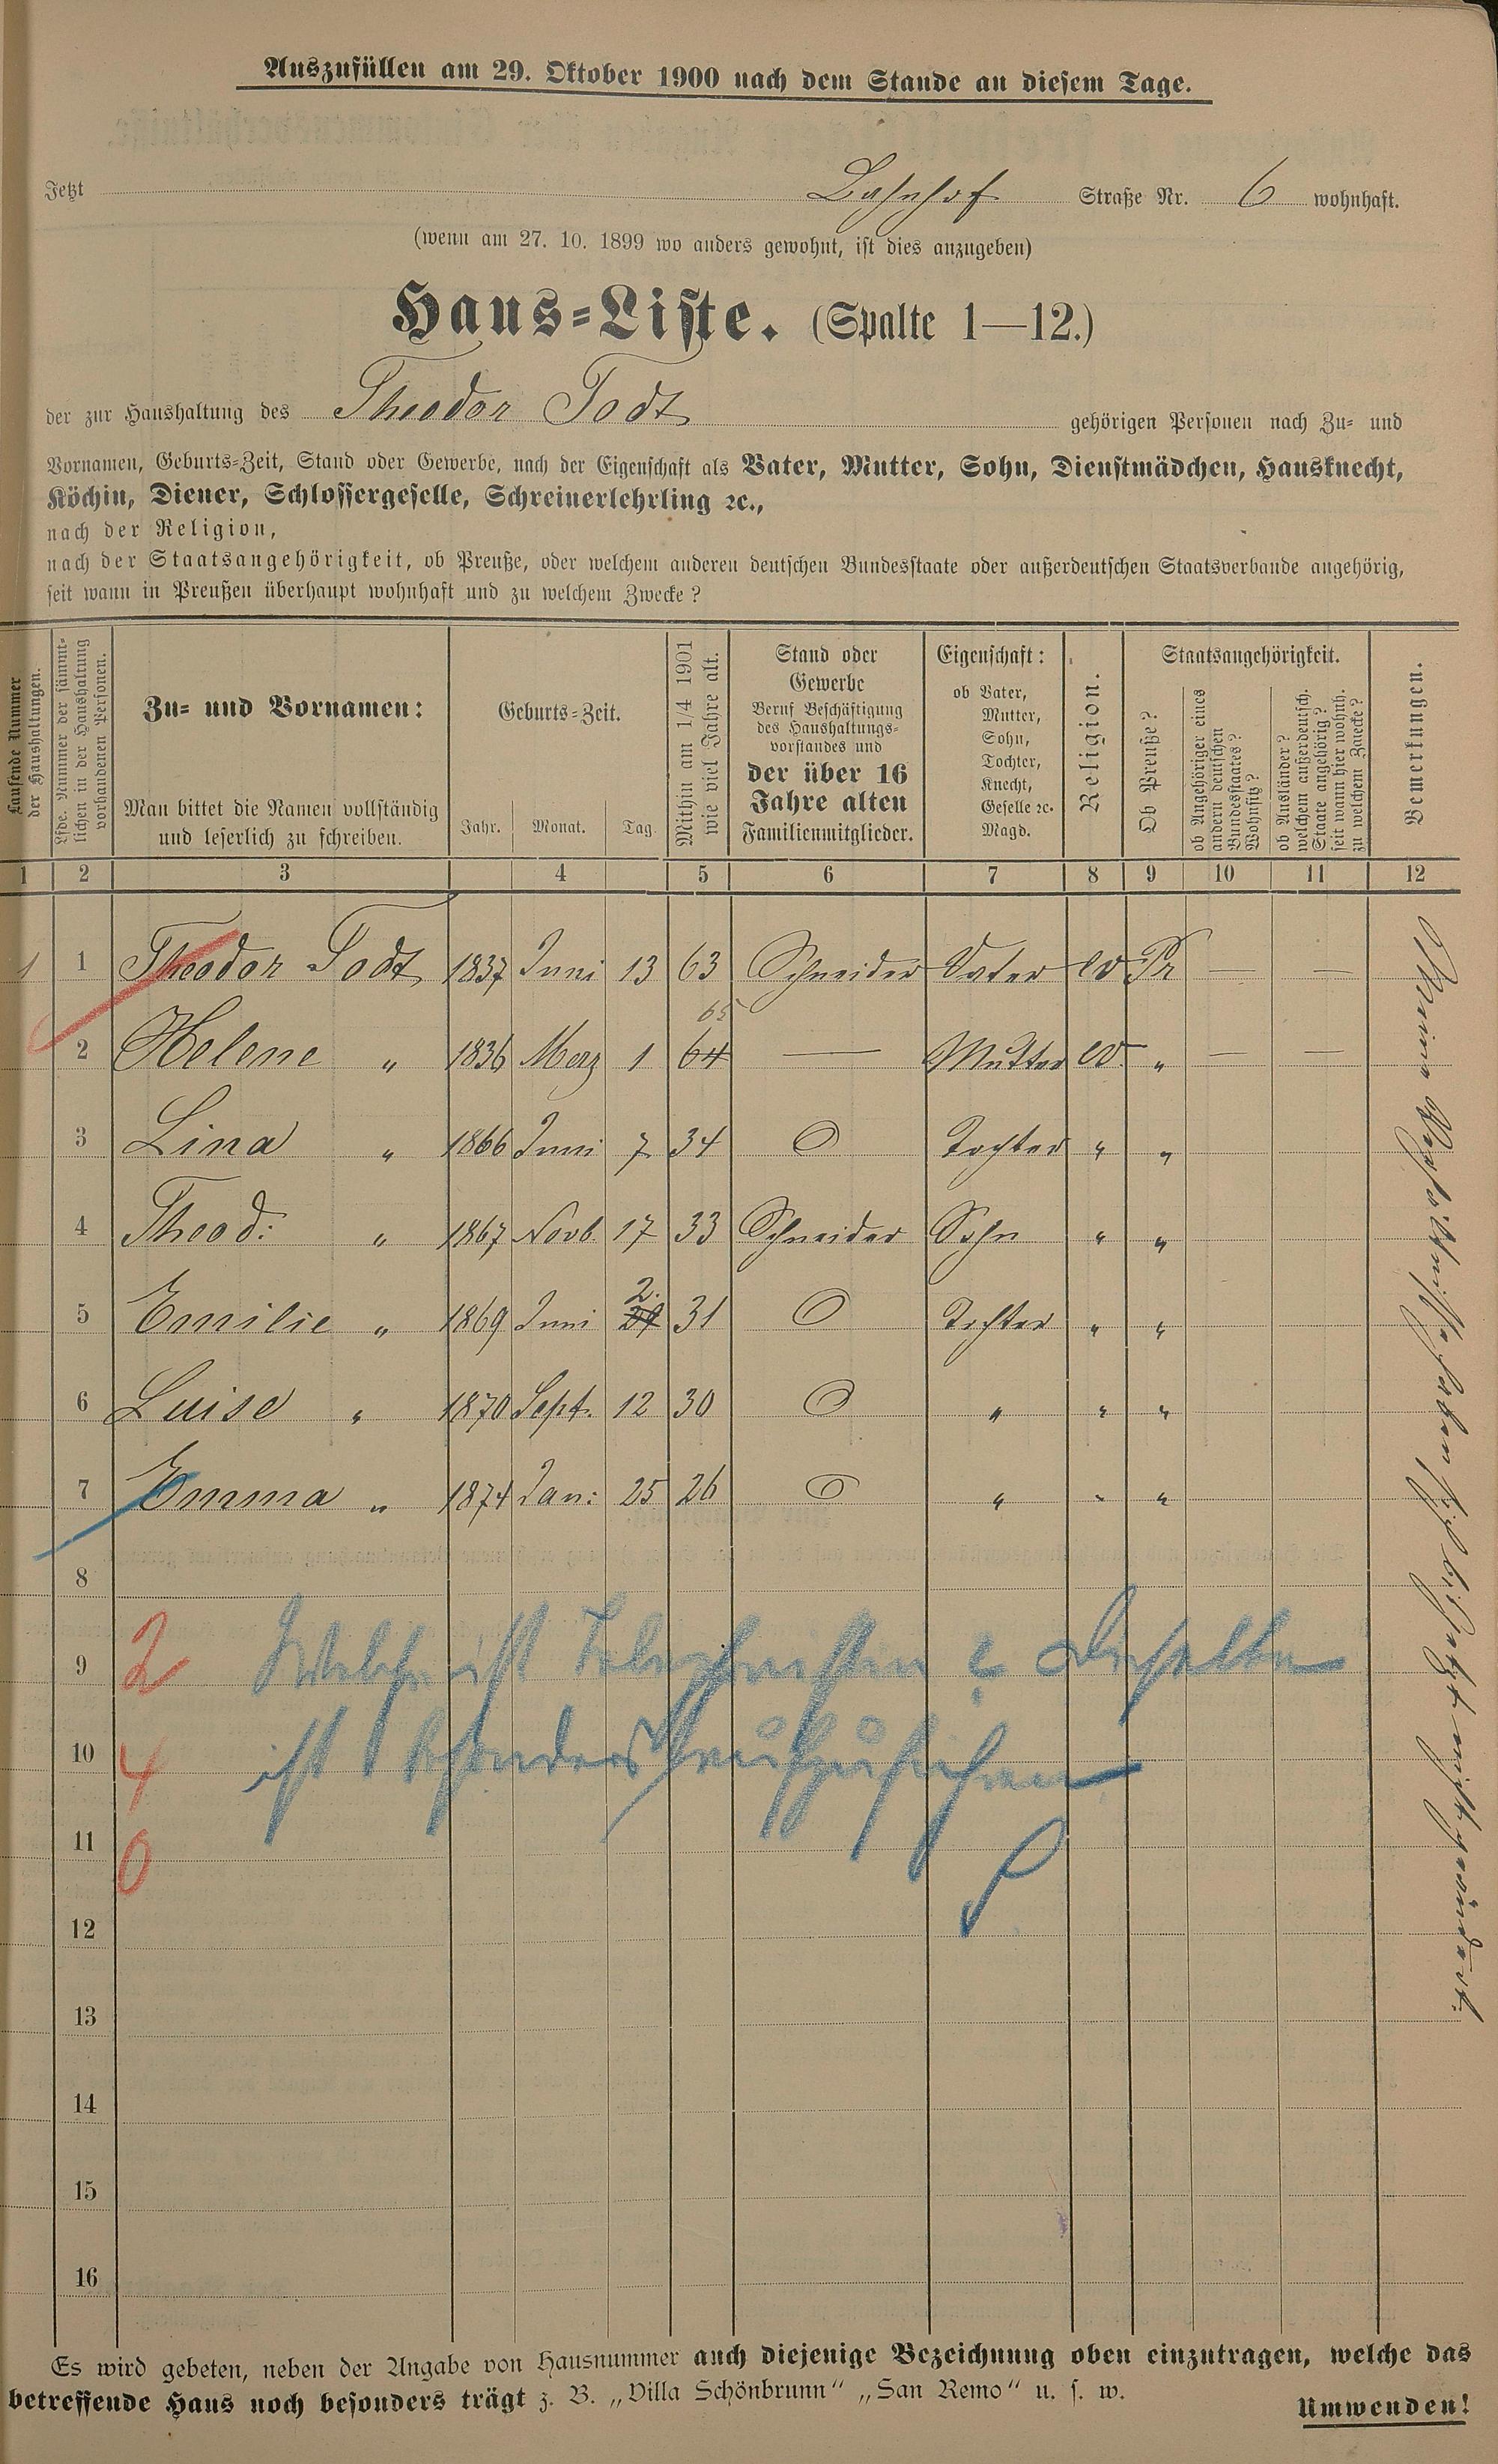 Auszufüllen am 29. Oktober 1900 nach dem Stande an diesem Tage.
Jetzt Bahnhof Straße Nr. 6 wohnhaft.
(wenn am 27. 10. 1899 wo anders gewohnt, ist dies anzugeben)
Haus-Liste. (Spalte 1—12.)
der zur Haushaltung des Theodor Todt gehörigen Personen nach Zu- und
Vornamen, Geburts-Zeit, Stand oder Gewerbe, nach der Eigenschaft als Vater, Mutter, Sohn, Dienstmädchen, Hausknecht,
Köchin, Diener, Schlossergeselle, Schreinerlehrling ꝛc.,
nach der Religion,
nach der Staatsangehörigkeit, ob Preuße, oder welchem anderen deutschen Bundesstaate oder außerdeutschen Staatsverbande angehörig,
seit wann in Preußen überhaupt wohnhaft und zu welchem Zwecke?
Laufende Nummer
der Haushaltungen.
Lfde. Nummer der sämmt-
lichen in der Haushaltung
vorhandenen Personen.
Zu- und Vornamen:
Man bittet die Namen vollständig
und leserlich zu schreiben.
Geburts-Zeit.
Jahr. Monat. Tag.
Mithin am 1/4 1901
wie viel Jahre alt.
Stand oder
Gewerbe
Beruf Beschäftigung
des Haushaltungs-
vorstandes und
der über 16
Jahre alten
Familienmitglieder.
Eigenschaft:
ob Vater,
Mutter,
Sohn,
Tochter,
Knecht,
Geselle ꝛc.
Magd.
Religion.
Staatsangehörigkeit.
Ob Preuße?
ob Angehöriger eines
andern deutschen
Bundesstaates?
Wohnsitz?
ob Ausländer?
welchem außerdeutsch.
Staate angehörig?
seit wann hier wohnh.
zu welchem Zwecke?
Bemerkungen.
1 2 3 4 5 6 7 8 9 10 11 12
1 1 Theodor Todt 1837 Juni 13 63 Schneider Vater ev Pr — —
65
2 Helene " 1836 Merz 1 64 — Mutter ev. " — —
3 Lina " 1866 Juni 7 34 Tochter " "
4 Theod: " 1867 Novb. 17 33 Schneider Sohn " "
2.
5 Emilie " 1869 Juni 31 Tochter " "
6 Luise " 1870 Sept. 12 30 " " "
7 Emma " 1874 Jan: 25 26 " " "
8
9 2 Welche ist Telephonistin? Dieselbe
10 4 ist besonders aufzuführen
11 0
12
13
14
15
16
Meine Verhältnisse haben sich bis jetzt nicht geändert.
Es wird gebeten, neben der Angabe von Hausnummer auch diejenige Bezeichnung oben einzutragen, welche das
betreffende Haus noch besonders trägt z. B. „Villa Schönbrunn" „San Remo" u. s. w.
Umwenden!